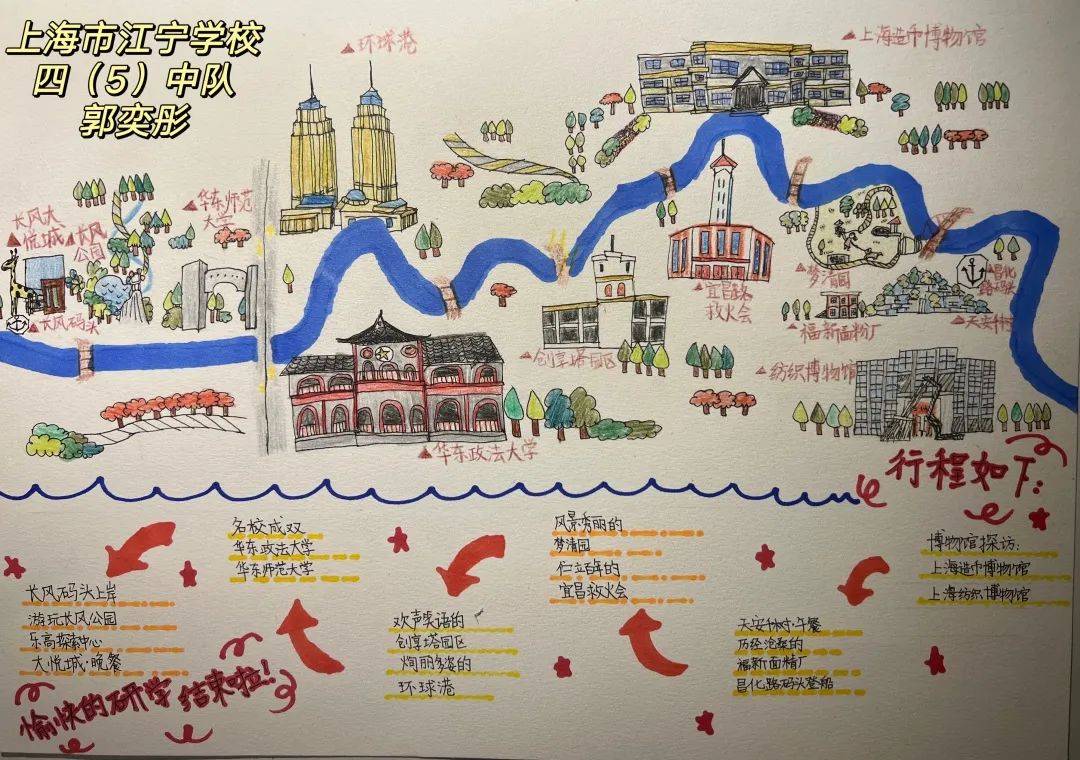 上海市江宁学校
四（5）中队
郭奕彤
环球港
上海造币博物馆
长风大
悦城
长风
公园
华东师范
大学
长风码头
宜昌路
救火会
梦清园
昌化
路码头
福新面粉厂
天安千树
创享塔园区
纺织博物馆
华东政法大学
行程如下:
博物馆探访:
上海造币博物馆
上海纺织博物馆
天安千树·午餐
历经沧桑的
福新面粉厂
昌化路码头登船
风景秀丽的
梦清园
伫立百年的
宜昌救火会
欢声笑语的
创享塔园区
绚丽多姿的
环球港
名校成双
华东政法大学
华东师范大学
长风码头上岸
游玩长风公园
乐高探索中心
大悦城·晚餐
愉快的研学结束啦!